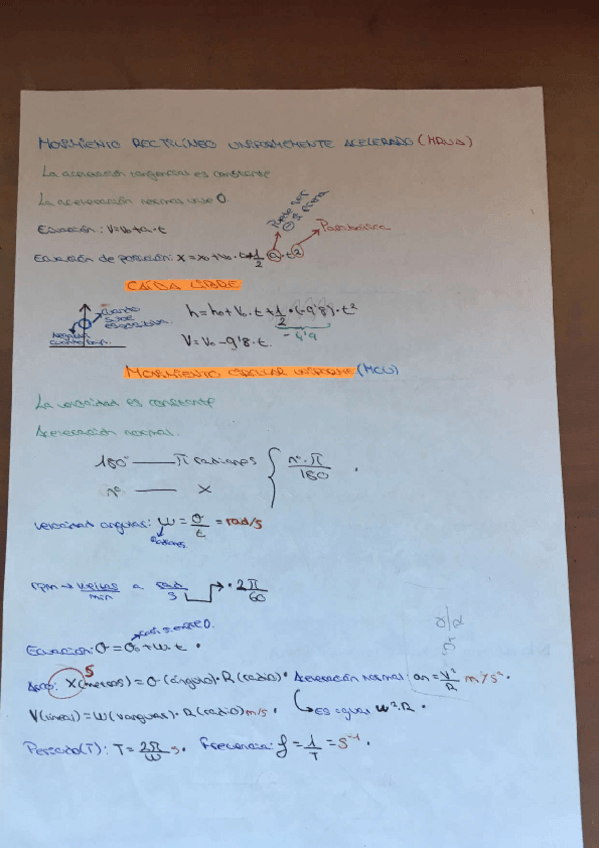 MOVIMIENTO RECTILÍNEO UNIFORMEMENTE ACELERADO (MRUA)
La aceleración tangencial es constante
La aceleración normal vale 0.
Ecuación: V=V₀+a·t
Puede ser ⊖ si frena
Parabólica
Ecuación de posición: X=X₀+V₀·t+1/2·a·t²
CAÍDA LIBRE
cuando sube es positiva.
negativa cuando baja.
h=h₀+V₀·t+1/2·(-9'8)·t²
-4'9
V=V₀-9'8·t.
MOVIMIENTO CIRCULAR UNIFORME (MCU)
La velocidad es constante
Aceleración normal.
180° — π radianes
nº — X
nº·π/180
Velocidad angular: ω=σ/t=rad/s
radianes
rpm→vueltas/min a rad/s → ·2π/60
casi siempre 0.
Ecuación: σ=σ₀+ω·t.
S
Arco: X(metros)=σ(ángulo)·R(radio). Aceleración normal: an=V²/R m/s².
V(lineal)=ω(v angular)·R(radio) m/s. Es igual ω²·R.
Periodo(T): T=2π/ω s. Frecuencia: f=1/T=s⁻¹.